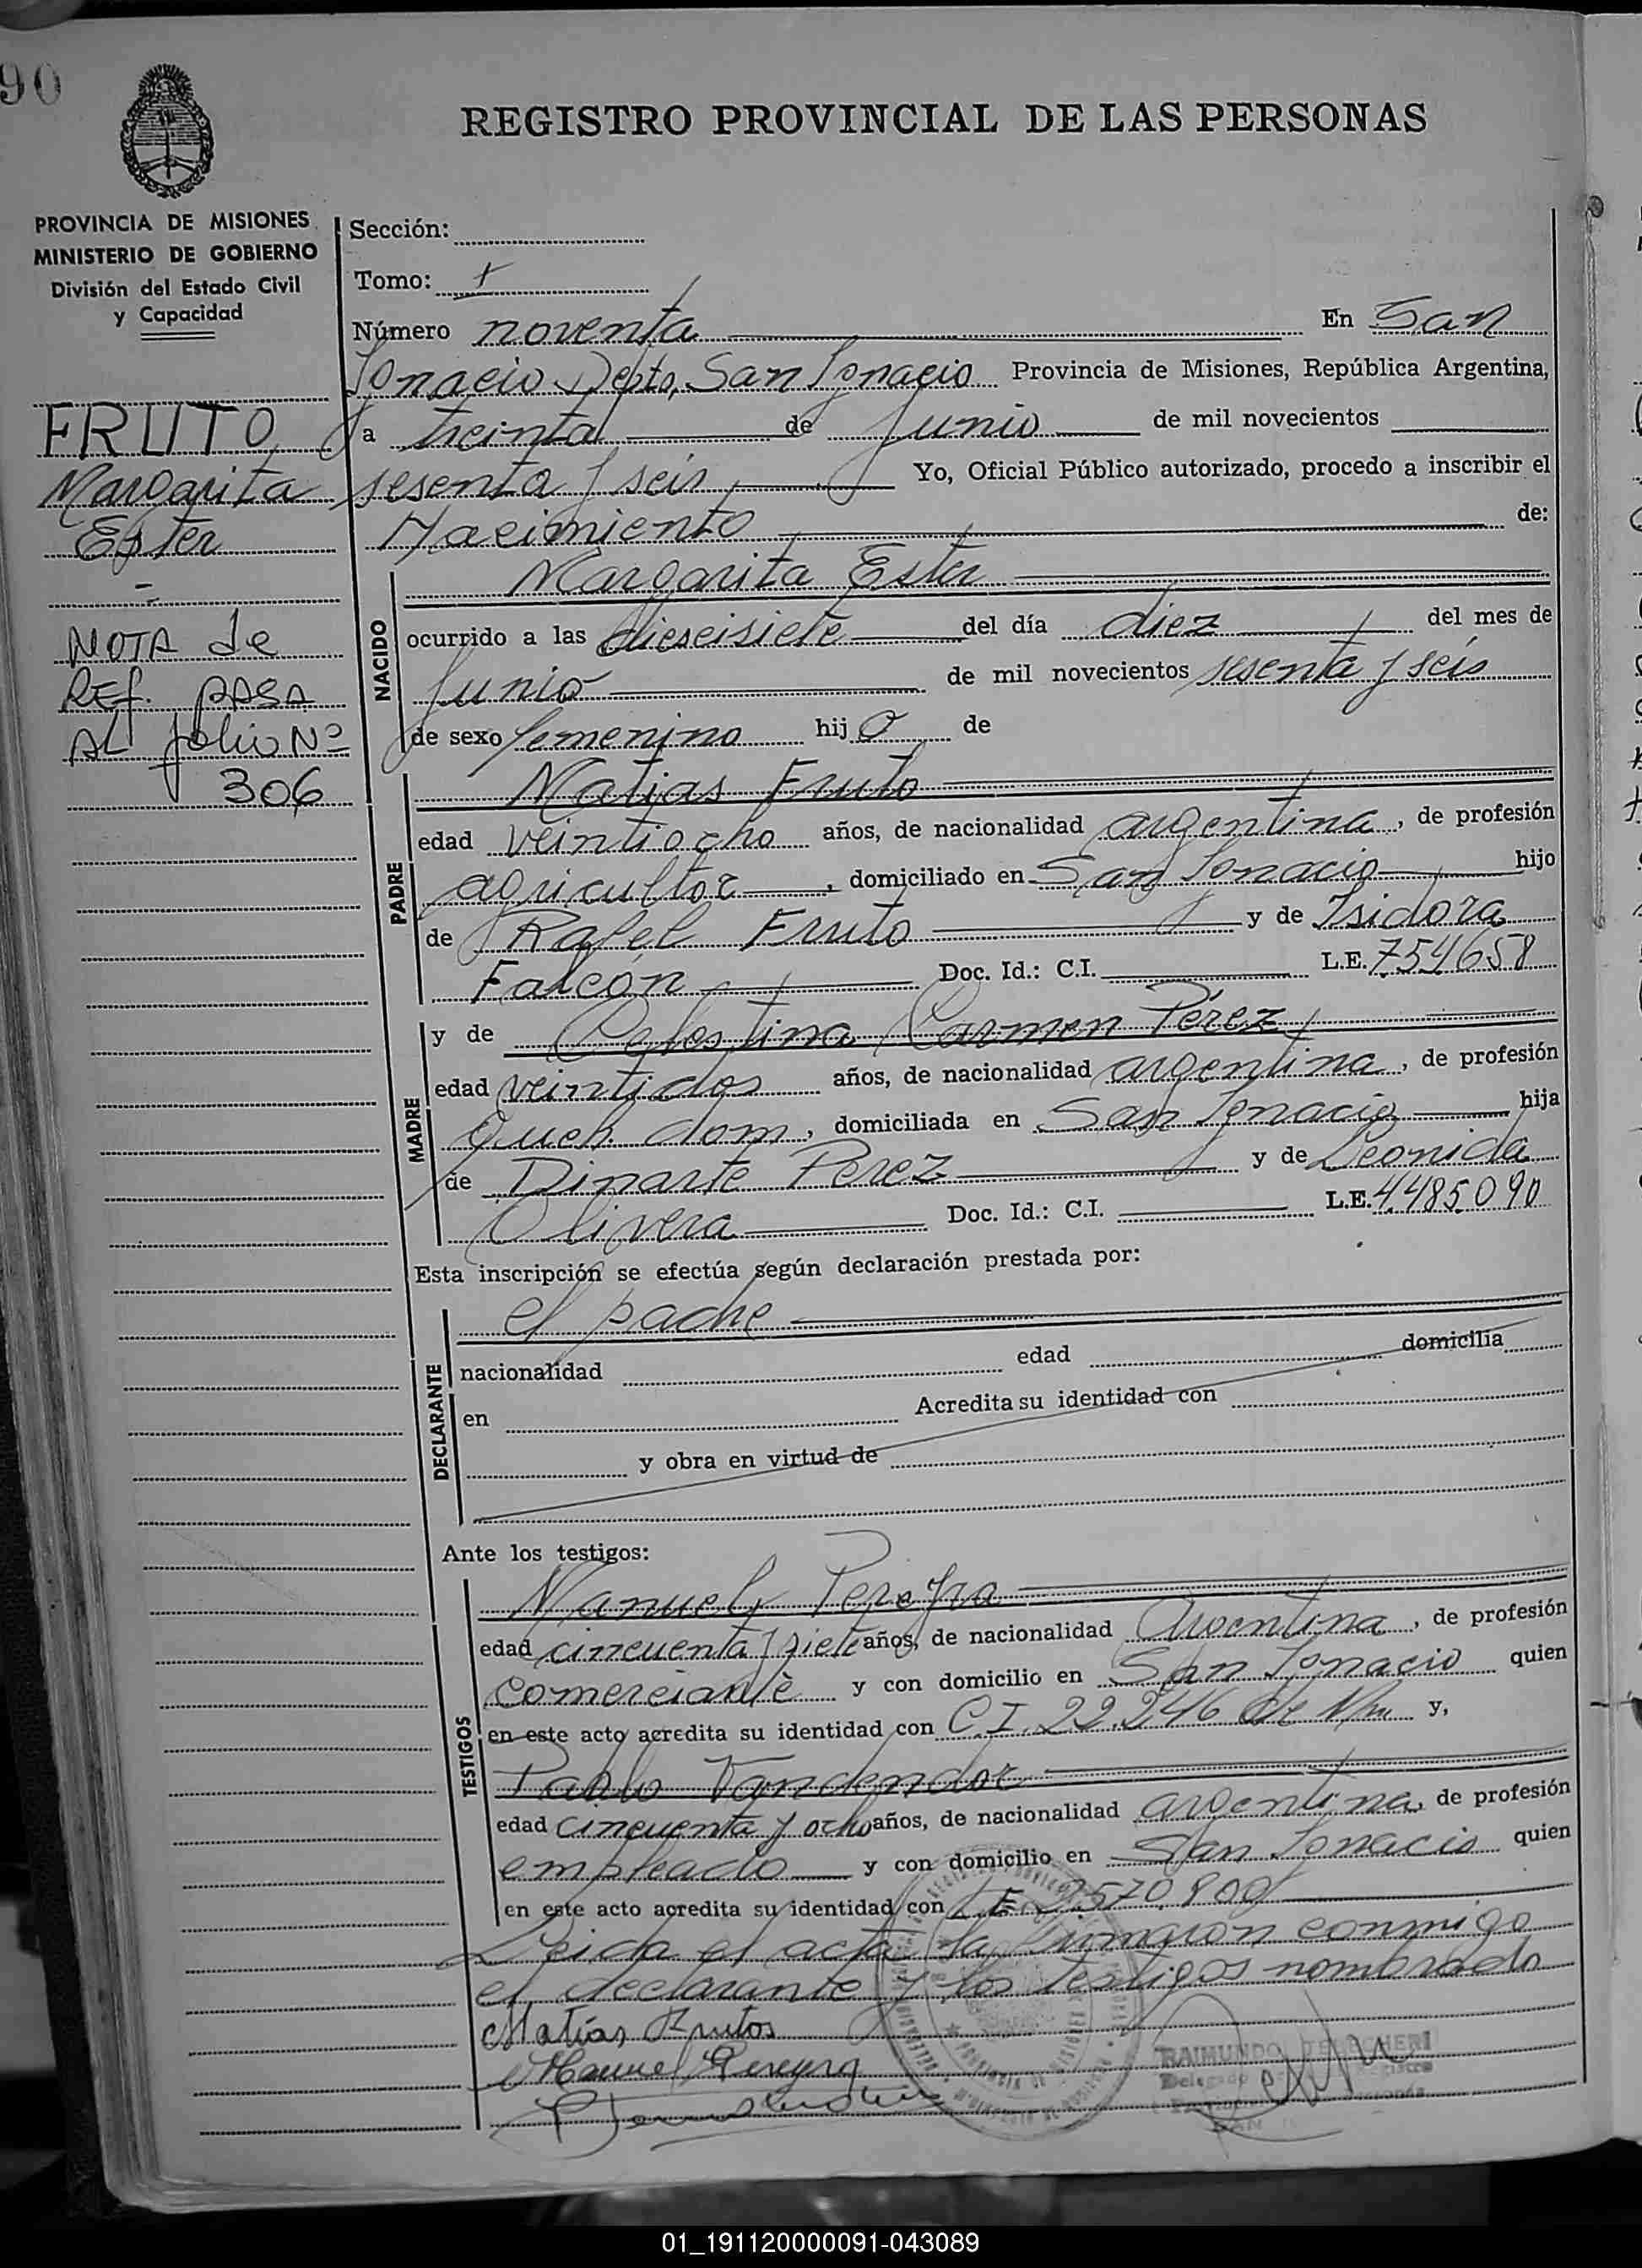 90
REGISTRO PROVINCIAL DE LAS PERSONAS
PROVINCIA DE MISIONES
MINISTERIO DE GOBIERNO
División del Estado Civil
y Capacidad
FRUTO
Margarita
Ester
NOTA de
REF. PASA
AL folio Nº
306
Sección:
Tomo:
Número noventa En San
Ignacio Depto, San Ignacio Provincia de Misiones, República Argentina,
a treinta de Junio de mil novecientos
sesenta y seis Yo, Oficial Público autorizado, procedo a inscribir el
Nacimiento de:
NACIDO
Margarita Ester
ocurrido a las dieseisiete del día diez del mes de
Junio de mil novecientos sesenta y seis
de sexo femenino hij a de
PADRE
Matias Fruto
edad veintiocho años, de nacionalidad argentina, de profesión
agricultor, domiciliado en San Ignacio hijo
de Rafel Fruto y de Isidora
Falcon Doc. Id.: C.I. L.E. 754658
MADRE
y de Celestina Carmen Pérez
edad veintidos años, de nacionalidad argentina, de profesión
Queh. dom, domiciliada en San Ignacio hija
de Dinarte Perez y de Leonida
Olivera Doc. Id.: C.I. L.E. 4485090
Esta inscripción se efectúa según declaración prestada por:
DECLARANTE
el padre
nacionalidad edad domicilia
en Acredita su identidad con
y obra en virtud de
Ante los testigos:
TESTIGOS
Manuel Pereyra
edad cincuenta y siete años, de nacionalidad Argentina, de profesión
comerciante y con domicilio en San Ignacio quien
en este acto acredita su identidad con C.I. 22.246 de y,
Pablo Vandendor
edad cincuenta y ocho años, de nacionalidad argentina, de profesión
empleado y con domicilio en San Ignacio quien
en este acto acredita su identidad con L.E. 2.570.800
Leida el acta la firmaron conmigo
el declarante y los testigos nombrado
Matías Frutos
Manuel Pereyra
RAIMUNDO
Delegado
01_191120000091-043089